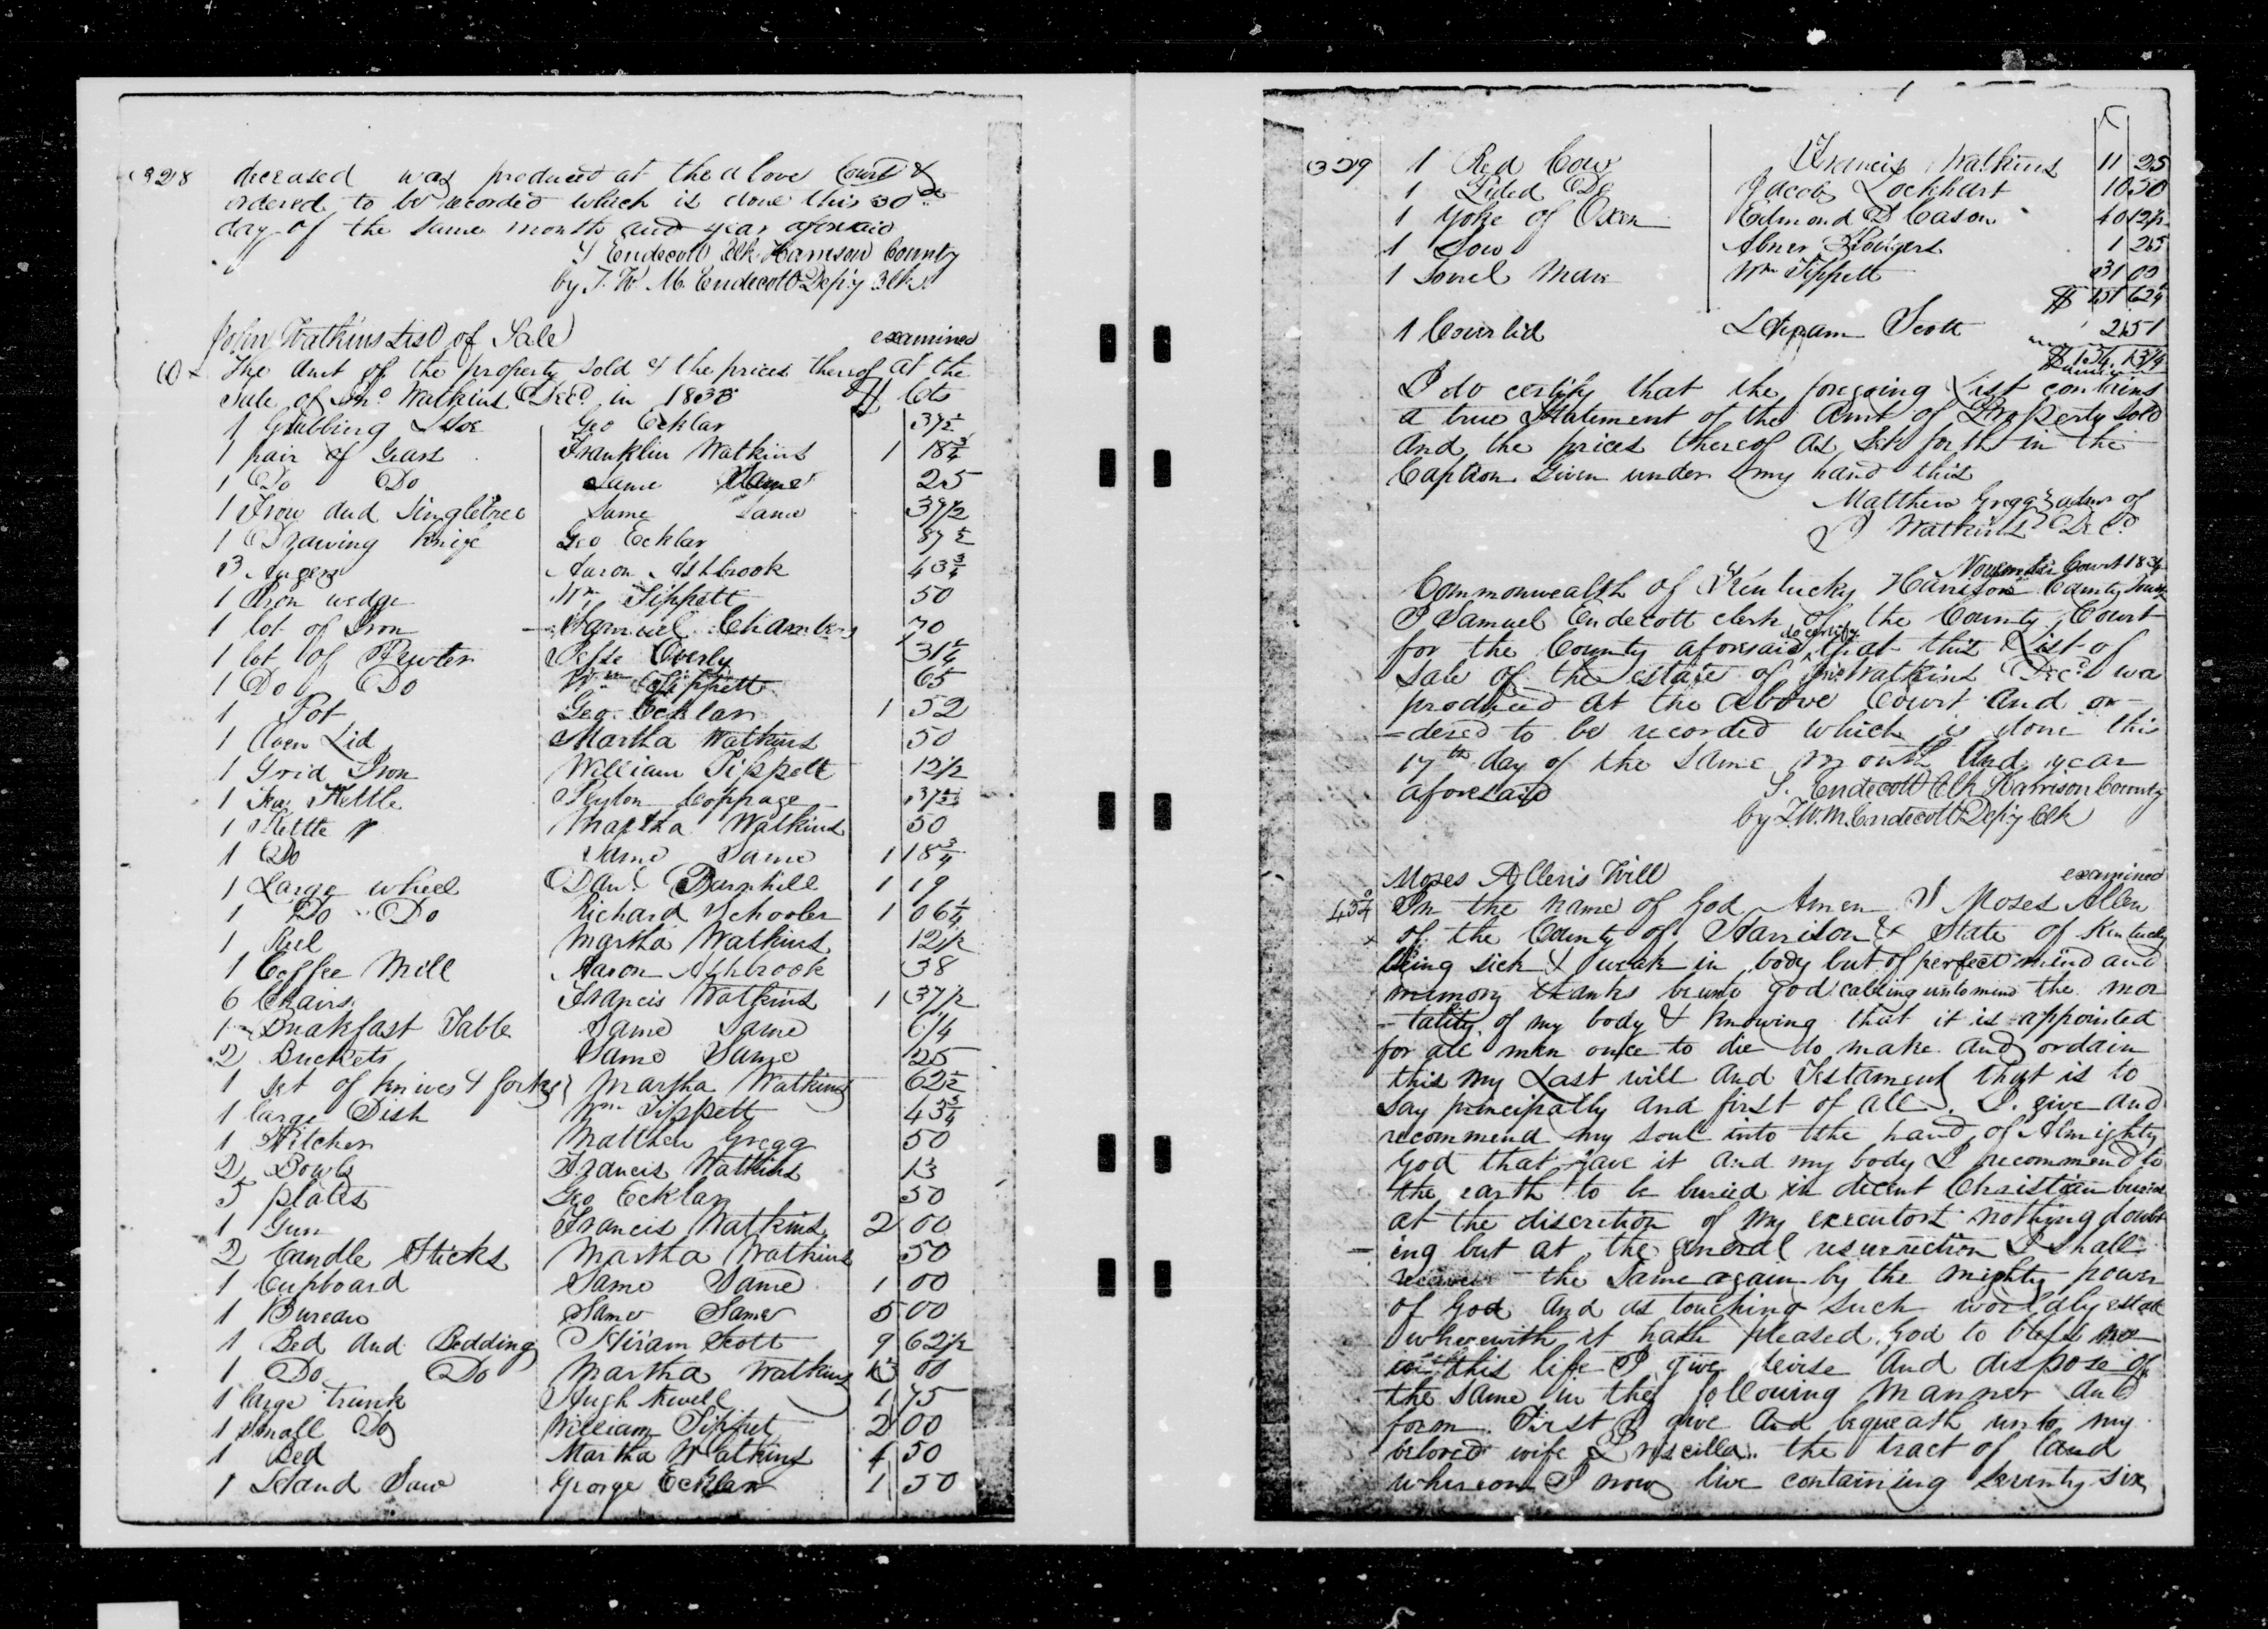 328 deceased was produced at the above Court &
ordered to be recorded which is done this 30th
day of the same month and year aforesaid
S Endecott Clk Harrison County
by J. W. M. Endecott Dep'y Clk
John Watkins List of Sale examined
The Amt of the property sold & the prices thereof at the
Sale of Jno Watkins Decd in 1833 $ Cts
1 Grubbing Hoe Geo Ecklar 37½
1 pair of Gears Franklin Watkins 1 18¾
1 Do Do Same Same 25
1 Iron and Singletree Same Same 37½
1 Drawing Knife Geo Ecklar 87½
3 Augers Aaron Ashbrook 43¾
1 Iron wedge Wm Tippett 50
1 lot of Iron Samuel Chambers 70
1 lot of Pewter Jesse Overly 31¼
1 Do Do Wm Tippett 65
1 Pot Geo Ecklar 1 52
1 Oven Lid Martha Watkins 50
1 Grid Iron William Tippett 12½
1 Tea Kettle Peyton Coppage 37½
1 Kettle Martha Watkins 50
1 Do Same Same 1 18¾
1 Large wheel Danl Barnhill 1 19
1 Do Do Richard Schooler 1 06¼
1 Reel Martha Watkins 12½
1 Coffee Mill Aaron Ashbrook 38
6 Chairs Francis Watkins 1 37½
1 Breakfast Table Same Same 6¼
2 Buckets Same Same 25
1 set of knives & forks Martha Watkins 62½
1 large Dish Wm Tippett 43¾
1 Pitcher Matthew Gregg 50
2 Bowls Francis Watkins 13
5 plates Geo Ecklar 50
1 Gun Francis Watkins 2 00
2 Candle Sticks Martha Watkins 50
1 Cupboard Same Same 1 00
1 Bureau Same Same 5 00
1 Bed and Bedding Hiram Scott 9 62½
1 Do Do Martha Watkins 13 00
1 large trunk Hugh Newell 1 75
1 small Do William Tippet 2 00
1 Bed Martha Watkins 4 50
1 Hand Saw George Ecklar 1 50
329 1 Red Cow Francis Watkins 11 25
1 Pided Do Jacob Lockhart 10 50
1 Yoke of Oxen Edmond D Cason 40 12½
1 Sow Abner Rodgers 1 25
1 Sorrel Mare Wm Tippett 31 00
1 Coverlid Hiram Scott 2 51
I do certify that the foregoing List contains
a true Statement of the Amt of Property sold
And the prices thereof as set forth in the
Caption Given under my hand this
Matthew Gregg admr of
J Watkins Decd
November Court 1834
Commonwealth of Kentucky Harrison County
I Samuel Endecott clerk of the County Court
for the County aforesaid do certify that this List of
Sale of the estate of Jno Watkins Decd wa
produced at the above Court and or-
-dered to be recorded which is done this
17th day of the same month and year
aforesaid S. Endecott Clk Harrison County
by J. W. M. Endecott Dep'y Clk
Moses Allen's Will examined
In the name of God Amen I Moses Allen
of the County of Harrison & State of Kentucky
being sick & weak in body but of perfect mind and
memory thanks be unto god calling unto mind the mor
-tality of my body & knowing that it is appointed
for all men once to die do make and ordain
this my Last will and Testament that is to
say principally and first of all. I give and
recommend my soul into the hand of Almighty
God that gave it and my body I recommend to
the earth to be buried in decent Christian burial
at the discretion of my executors nothing doubt
-ing but at the general resurrection I shall
receive the same again by the mighty power
of God and as touching such worldly estate
wherewith it hath pleased God to bless me
in this life I give devise and dispose of
the same in the following manner and
form. First I give and bequeath unto my
beloved wife Priscilla the tract of land
whereon I now live containing seventy six